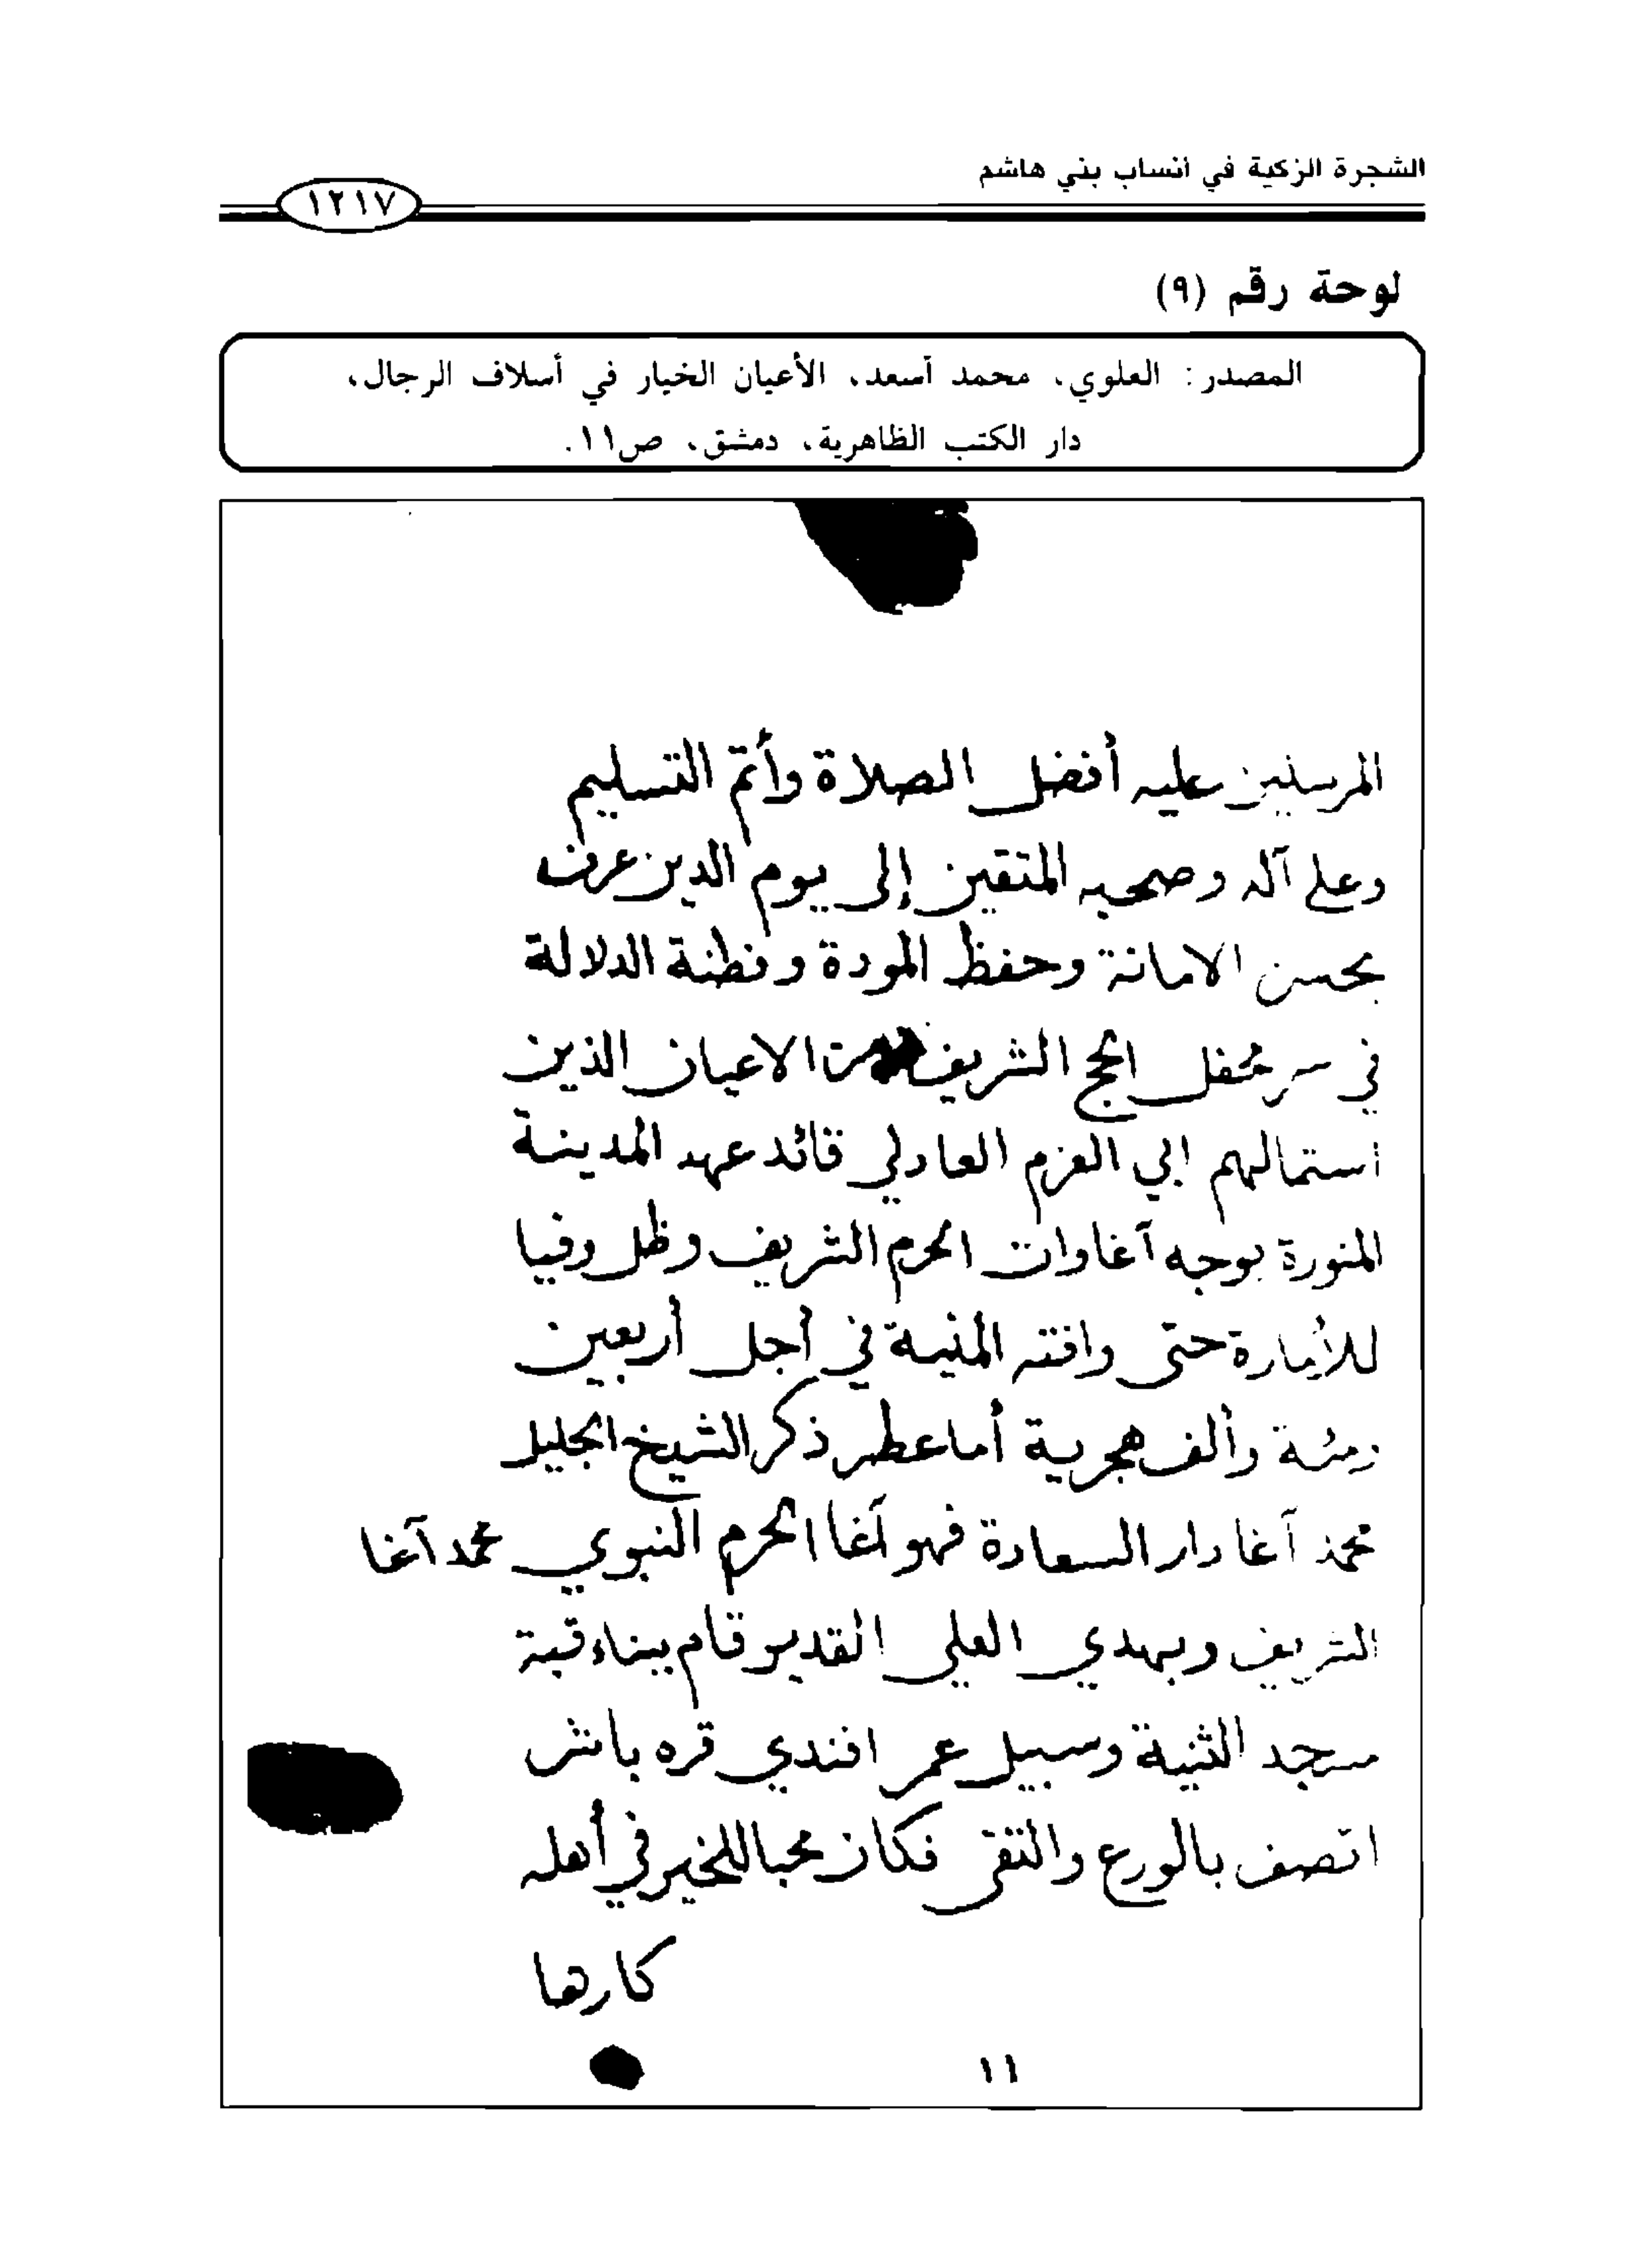 الشجرة الزكية في أنساب بني هاشم
١٢١٧
لوحة رقم (٩)
المصدر: العلوي، محمد أسعد، الأعيان الخيار في أسلاف الرجال،
دار الكتب الظاهرية، دمشق، ص١١.
المرسلين عليه أفضل الصلاة وأتم التسليم
وعلى آله وصحبه المتقين إلى يوم الدين عرف
بحسن الامانة وحفظ المودة وفطنة الدلالة
في محفل الحج الشريف من الاعيان الذين
استمالهم ابي العزم العادلي قائد عهد المدينة
المنورة بوجه آغاوات الحرم الشريف وظل وفيا
للأمارة حتى وافته المنية في أجل أربعين
ومئة وألف هجرية أما عطر ذكر الشيخ الجليل
محمد آغا دار السعادة فهو آغا الحرم النبوي محمد آغا
الشريف وبهدي العلي القدير قام ببناء قبة
مسجد الثنية وسبيل عمر افندي قره باش
اتصف بالورع والتقى فكان محبا للخير في أهله
كارها
١١